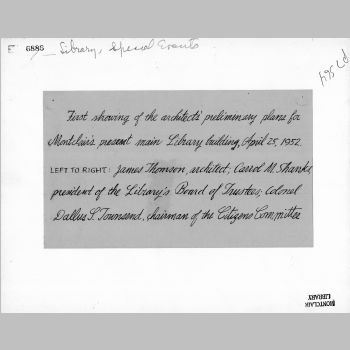 E 6886 Library, Special Events
P7564
First showing of the architect's prelimenary plans for
Montclair's present main Library building, April 25, 1952.
LEFT TO RIGHT: James Thomson, architect, Carrol M. Shanks,
president of the Library's Board of Trustees; Colonel
Dallas S. Townsend, chairman of the Citizens Committee
MONTCLAIR
LIBRARY